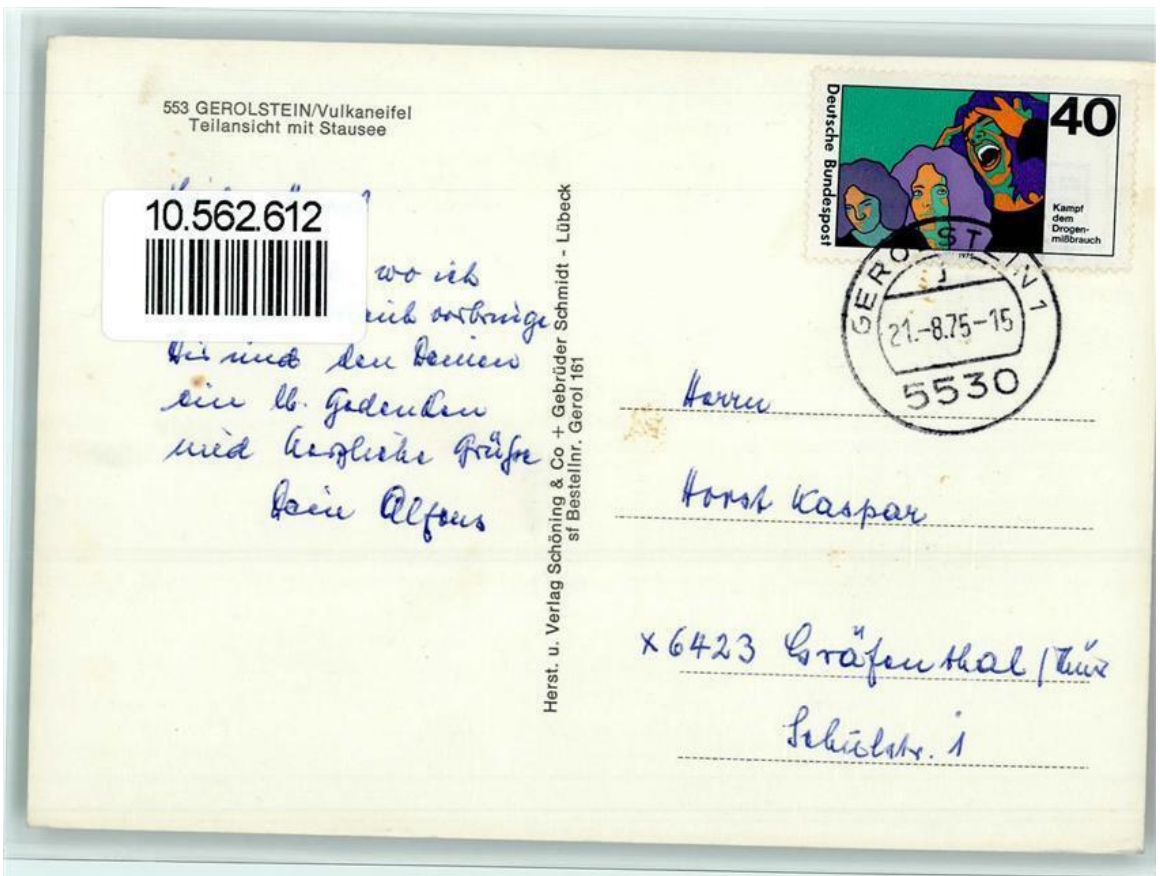 553 GEROLSTEIN/Vulkaneifel
Teilansicht mit Stausee
10.562.612
wo ich
verbringe
Dir und den Deinen
ein lb. Gedenken
und herzliche Grüße
Dein Alfons
Herst. u. Verlag Schöning & Co + Gebrüder Schmidt - Lübeck
sf Bestellnr. Gerol 161
Deutsche Bundespost
40
Kampf
dem
Drogen-
mißbrauch
1975
GEROLSTEIN 1
21.-8.75-15
5530
Herrn
Horst Kaspar
X6423 Gräfenthal/Thür
Schulstr. 1